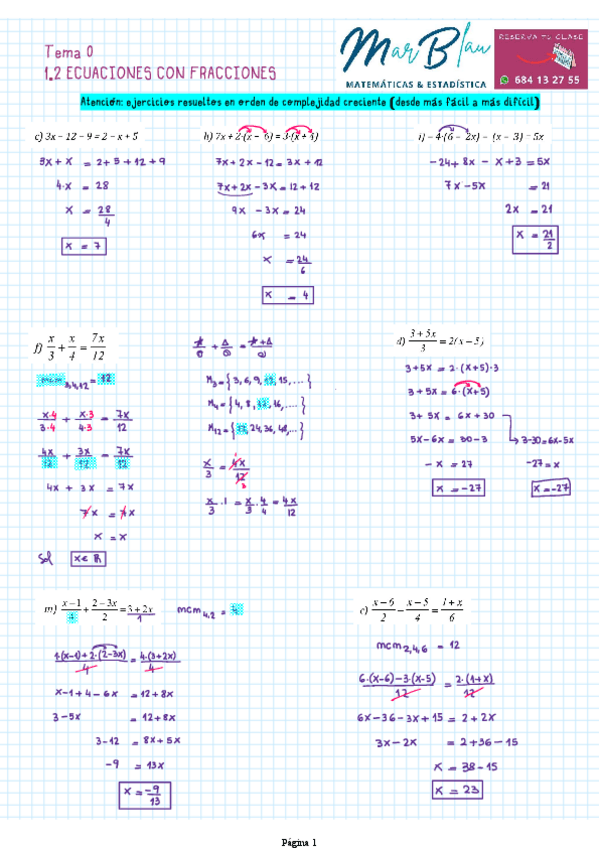 Tema 0
1.2 ECUACIONES CON FRACCIONES
Mar Blau
MATEMÁTICAS & ESTADÍSTICA
RESERVA TU CLASE
684 13 27 55
Atención: ejercicios resueltos en orden de complejidad creciente (desde más fácil a más difícil)
c) 3x − 12 − 9 = 2 − x + 5
3x + x = 2 + 5 + 12 + 9
4·x = 28
x = 28/4
x = 7
h) 7x + 2·(x − 6) = 3·(x + 4)
7x + 2x − 12 = 3x + 12
7x + 2x − 3x = 12 + 12
9x − 3x = 24
6x = 24
x = 24/6
x = 4
i) − 4·(6 − 2x) − (x − 3) = 5x
−24 + 8x − x + 3 = 5x
7x − 5x = 21
2x = 21
x = 21/2
f) x/3 + x/4 = 7x/12
3,4,12 = 12
x·4/3·4 + x·3/4·3 = 7x/12
4x/12 + 3x/12 = 7x/12
4x + 3x = 7x
7x = 7x
x = x
Sol x ∈ ℝ
M3 = {3, 6, 9, 12, 15, ...}
M4 = {4, 8, 12, 16, ...}
M12 = {12, 24, 36, 48, ...}
x/3 = 4x/12
x/3 · 1 = x/3 · 4/4 = 4x/12
d) 3 + 5x/3 = 2(x − 5)
3 + 5x = 2·(x+5)·3
3 + 5x = 6·(x+5)
3 + 5x = 6x + 30
5x − 6x = 30 − 3
→ 3−30 = 6x−5x
− x = 27
−27 = x
x = −27
x = −27
m) x − 1/4 + 2 − 3x/2 = 3 + 2x/1
mcm4,2 = 4
4(x−1) + 2·(2−3x)/4 = 4·(3+2x)/4
x − 1 + 4 − 6x = 12 + 8x
3 − 5x = 12 + 8x
3 − 12 = 8x + 5x
−9 = 13x
x = −9/13
e) x − 6/2 − x − 5/4 = 1 + x/6
mcm2,4,6 = 12
6·(x−6) − 3·(x−5)/12 = 2·(1+x)/12
6x − 36 − 3x + 15 = 2 + 2x
3x − 2x = 2 + 36 − 15
x = 38 − 15
x = 23
Página 1